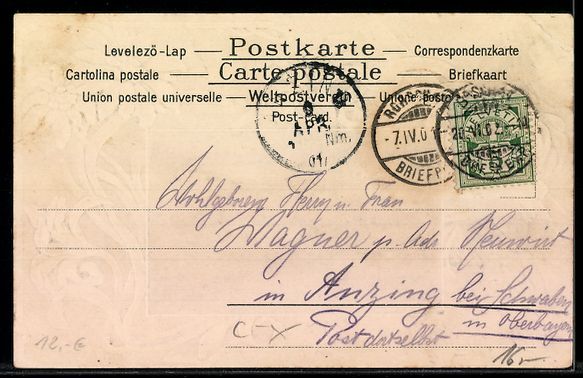 Levelező-Lap — Postkarte — Correspondenzkarte
Cartolina postale — Carte postale — Briefkaart
Union postale universelle — Weltpostverein — Unione posta
Post-
APR
Nm.
- 7.IV.0
BRIEFP
HELVETIA
Wohlgeboren Herrn u Frau
Wagner p. Ads Neuwirt
in Anzing bei Schwaben
in Oberbayern
Post daselbst
12,-€
16,-